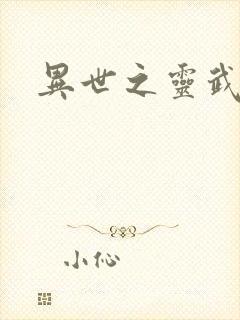 異世之靈武
小伈